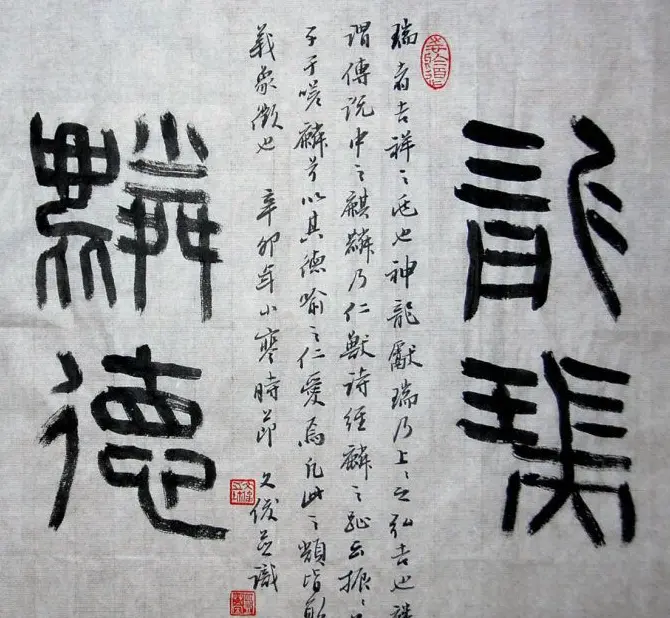 龍瑞
瑞者吉祥之兆也神龍獻瑞乃上〻之弘吉也
謂傳說中之麒麟乃仁獸詩經麟之趾云振〻
子于嗟麟兮以其德喻之仁愛焉凡此之類皆
義象徵也 辛卯年小寒時節 俊并識
麟德